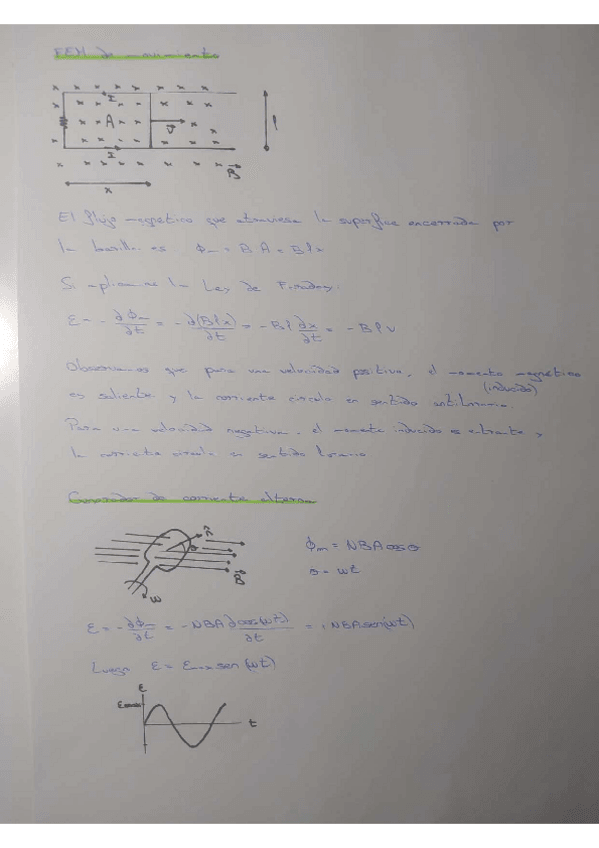 FEM de movimiento
I
A
v
l
I
B
x
El flujo magnético que atraviesa la superficie encerrada por
la barilla es ϕm = B A = B l x
Si aplicamos la Ley de Faraday:
ε = - ∂ϕm/∂t = - ∂(B l x)/∂t = - B l ∂x/∂t = - B l v
Observamos que para una velocidad positiva, el momento magnético
(inducido)
es saliente y la corriente circula en sentido antihorario.
Para una velocidad negativa, el momento inducido es entrante y
la corriente circula en sentido horario
Generador de corriente alterna
n
θ
B
ω
ϕm = NBA cosθ
θ = ωt
ε = - ∂ϕm/∂t = - NBA ∂cos(ωt)/∂t = NBA sen(ωt)
Luego ε = εmax sen(ωt)
ε
εmax
t